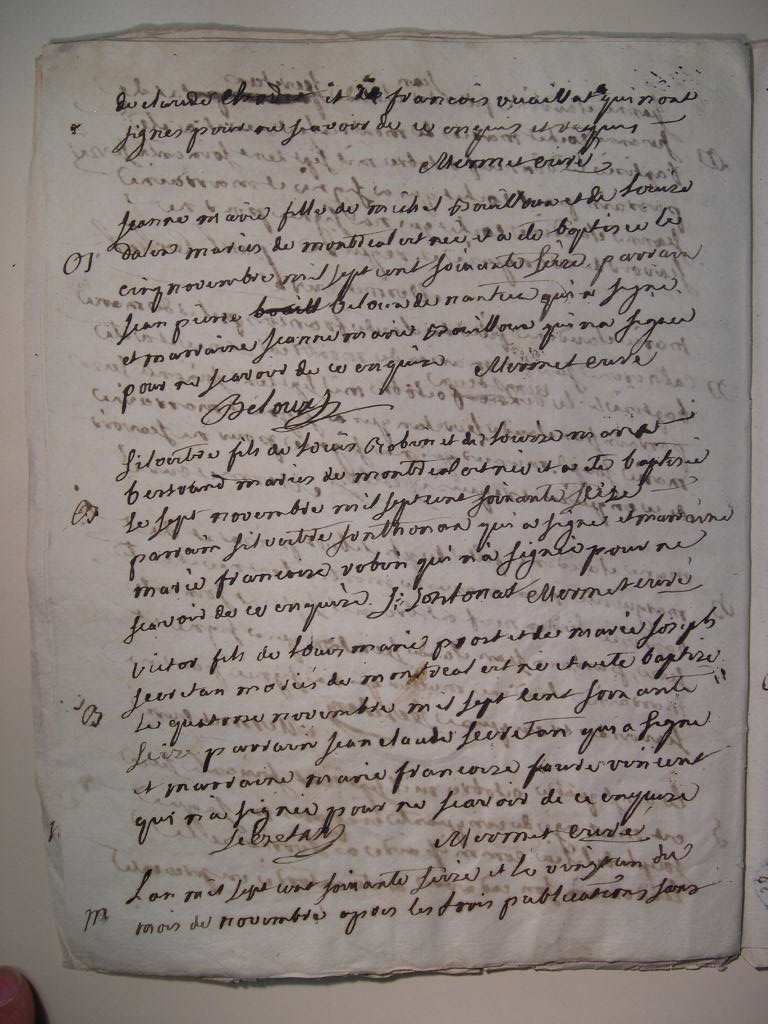 de claude et de francois vuaillat qui n'ont
signes pour ne scavoir de ce enquis et requis
Mermet curé
Jeanne marie fille de michel Bouilloux et de Louise
maries de montreal est née et a ete baptisée le
B
cinq novembre mil sept cent soixante seize parrain
jean pierre Beloux de nantua qui a signé
et marraine jeanne marie Bouilloux qui n'a signée
pour ne scavoir de ce enquise Mermet curé
Beloux
Silvestre fils de Louis Robin et de Louise marie
bertrand maries de montreal est né et a ete baptisé
B
le sept novembre mil sept cent soixante seize
parrain silvestre sonthonax qui a signé et marraine
marie francoise robin qui n'a signée pour ne
scavoir de ce enquise. S: Sontonax Mermet curé
Victor fils de Louis marie prost et de marie joseph
secretan mariés de montreal est né et a ete baptizé
B
le quatorze novembre mil sept cent soixante
seize parrain jean claude secretan qui a signé
et marraine marie francoise faure vincent
qui n'a signée pour ne scavoir de ce enquise
Secretan Mermet curé
L'an mil sept cent soixante seize et le vingt un du
M
mois de novembre apres les trois publications sans